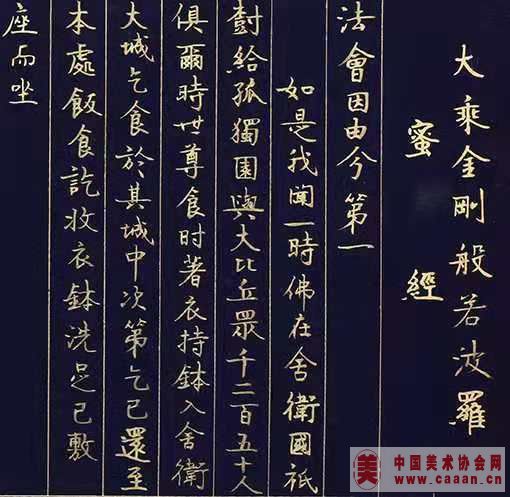 大乘金剛般若波羅
蜜經
法會因由分第一
如是我聞一時佛在舍衛國祇
樹給孤獨園與大比丘眾千二百五十人
俱爾時世尊食时著衣持鉢入舍衛
大城乞食於其城中次第乞已還至
本處飯食訖收衣鉢洗足已敷
座而坐
美
中国美术协会网
www.caaan.cn